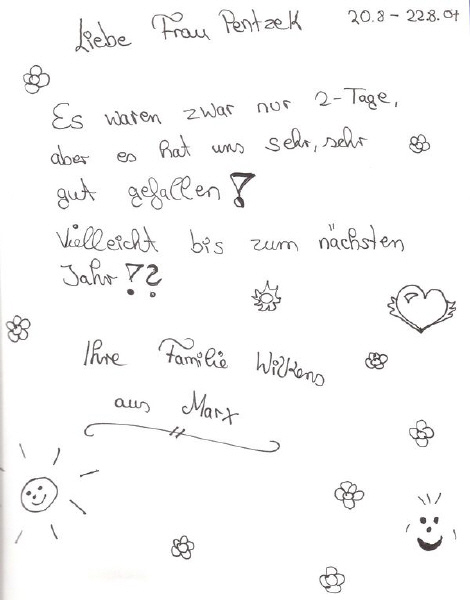 20.8 - 22.8.01
Liebe Frau Pentzek
Es waren zwar nur 2-Tage,
aber es hat uns sehr, sehr
gut gefallen!
Vielleicht bis zum nächsten
Jahr??
Ihre Familie Wilkens
aus Marx